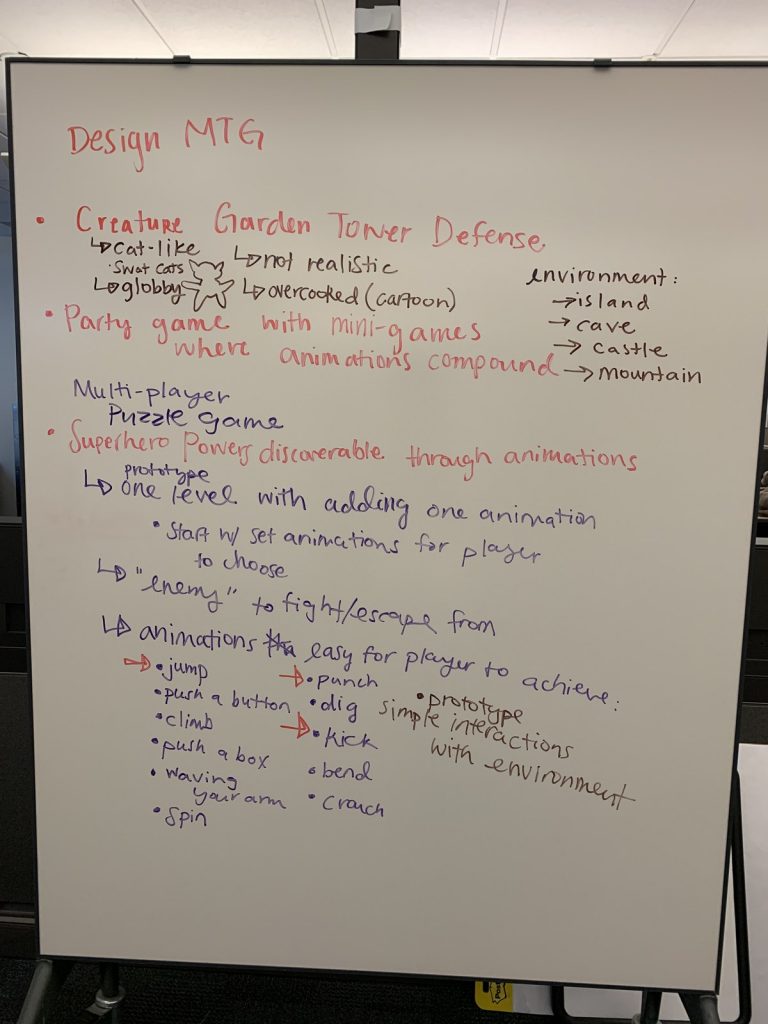 Design MTG
• Creature Garden Tower Defense
↳ cat-like
• Swat cats
↳ globby
↳ not realistic
↳ overcooked (cartoon)
environment:
→ island
→ cave
→ castle
→ mountain
• Party game with mini-games
where animations compound
Multi-player
Puzzle game
• Superhero Powers discoverable through animations
prototype
↳ one level with adding one animation
• Start w/ set animations for player
to choose
↳ "enemy" to fight/escape from
↳ animations easy for player to achieve:
→ • jump
• push a button
• climb
• push a box
• waving
your arm
• spin
→ • punch
• dig
→ • kick
• bend
• crouch
• prototype
simple interactions
with environment